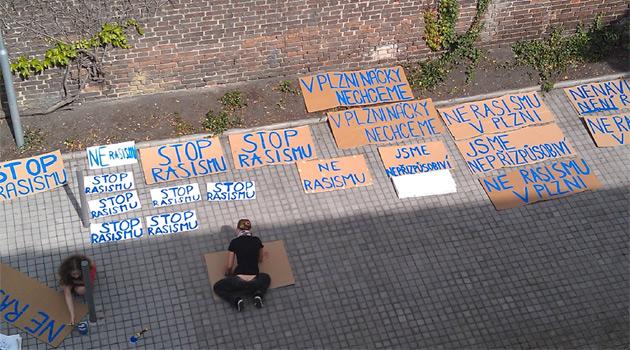 V PLZNI NÁCKY
NECHCEME
V PLZNI NÁCKY
NECHCEME
NE RASISMU
V PLZNI
NENAVI
NENÍ Ř
NE RA
STOP
RASISMU
NE RASISMU
STOP
RASISMU
STOP
RASISMU
NE
RASISMU
JSME
NEPŘIZPŮSOBIVÍ
JSME
NEPŘIZPŮSOBIVÍ
NE RASISMU
V PLZNI
STOP
RASISMU
STOP
RASISMU
STOP
RASISMU
STOP
RASISMU
STOP
RASISMU
STOP
RASISMU
NE RAS